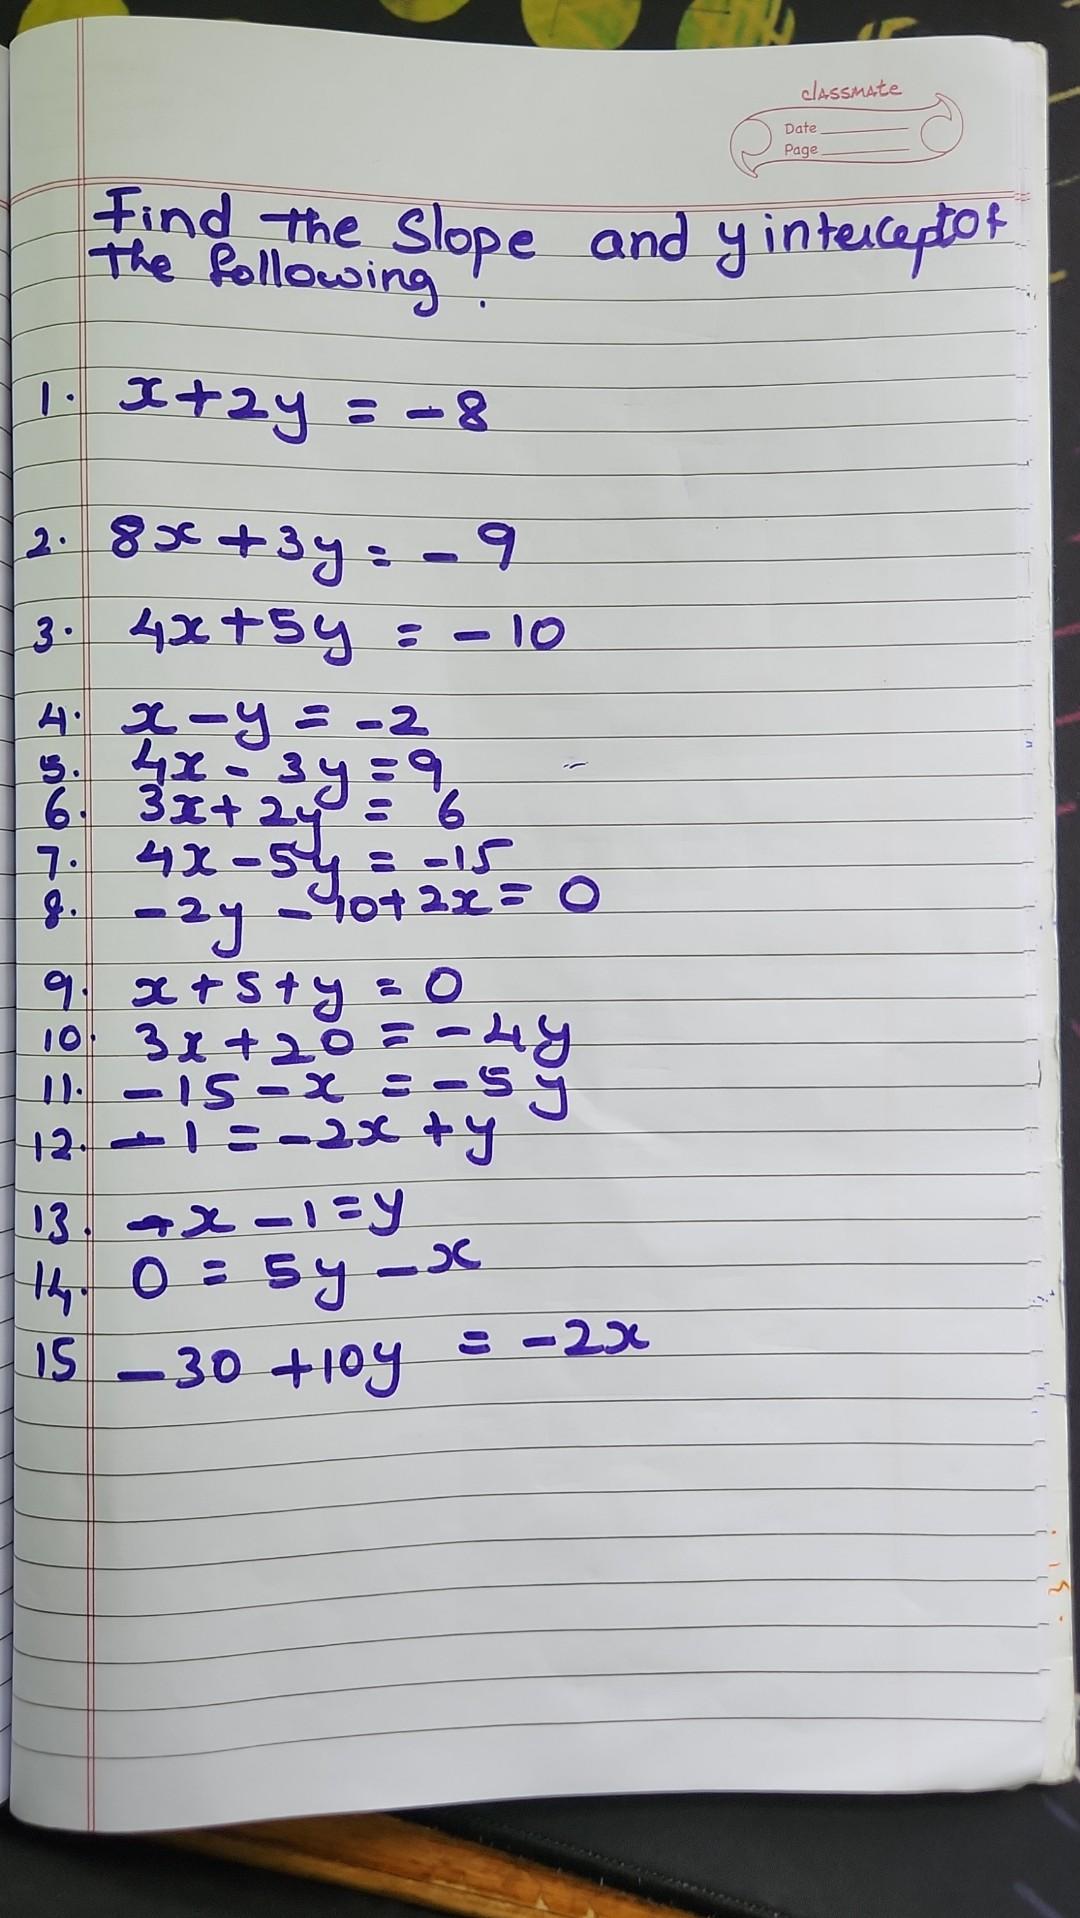 classmate
Date
Page
Find the Slope and y intercept of
the following.
1. x+2y = -8
2. 8x +3y = -9
3. 4x+5y = -10
4. x-y = -2
5. 4x - 3y = 9
6. 3x+2y = 6
7. 4x-5y = -15
8. -2y -10+2x = 0
9. x+5+y = 0
10. 3x+20 = -4y
11. -15-x = -5y
12. -1 = -2x +y
13. -x -1=y
14. 0 = 5y-x
15 -30 +10y = -2x